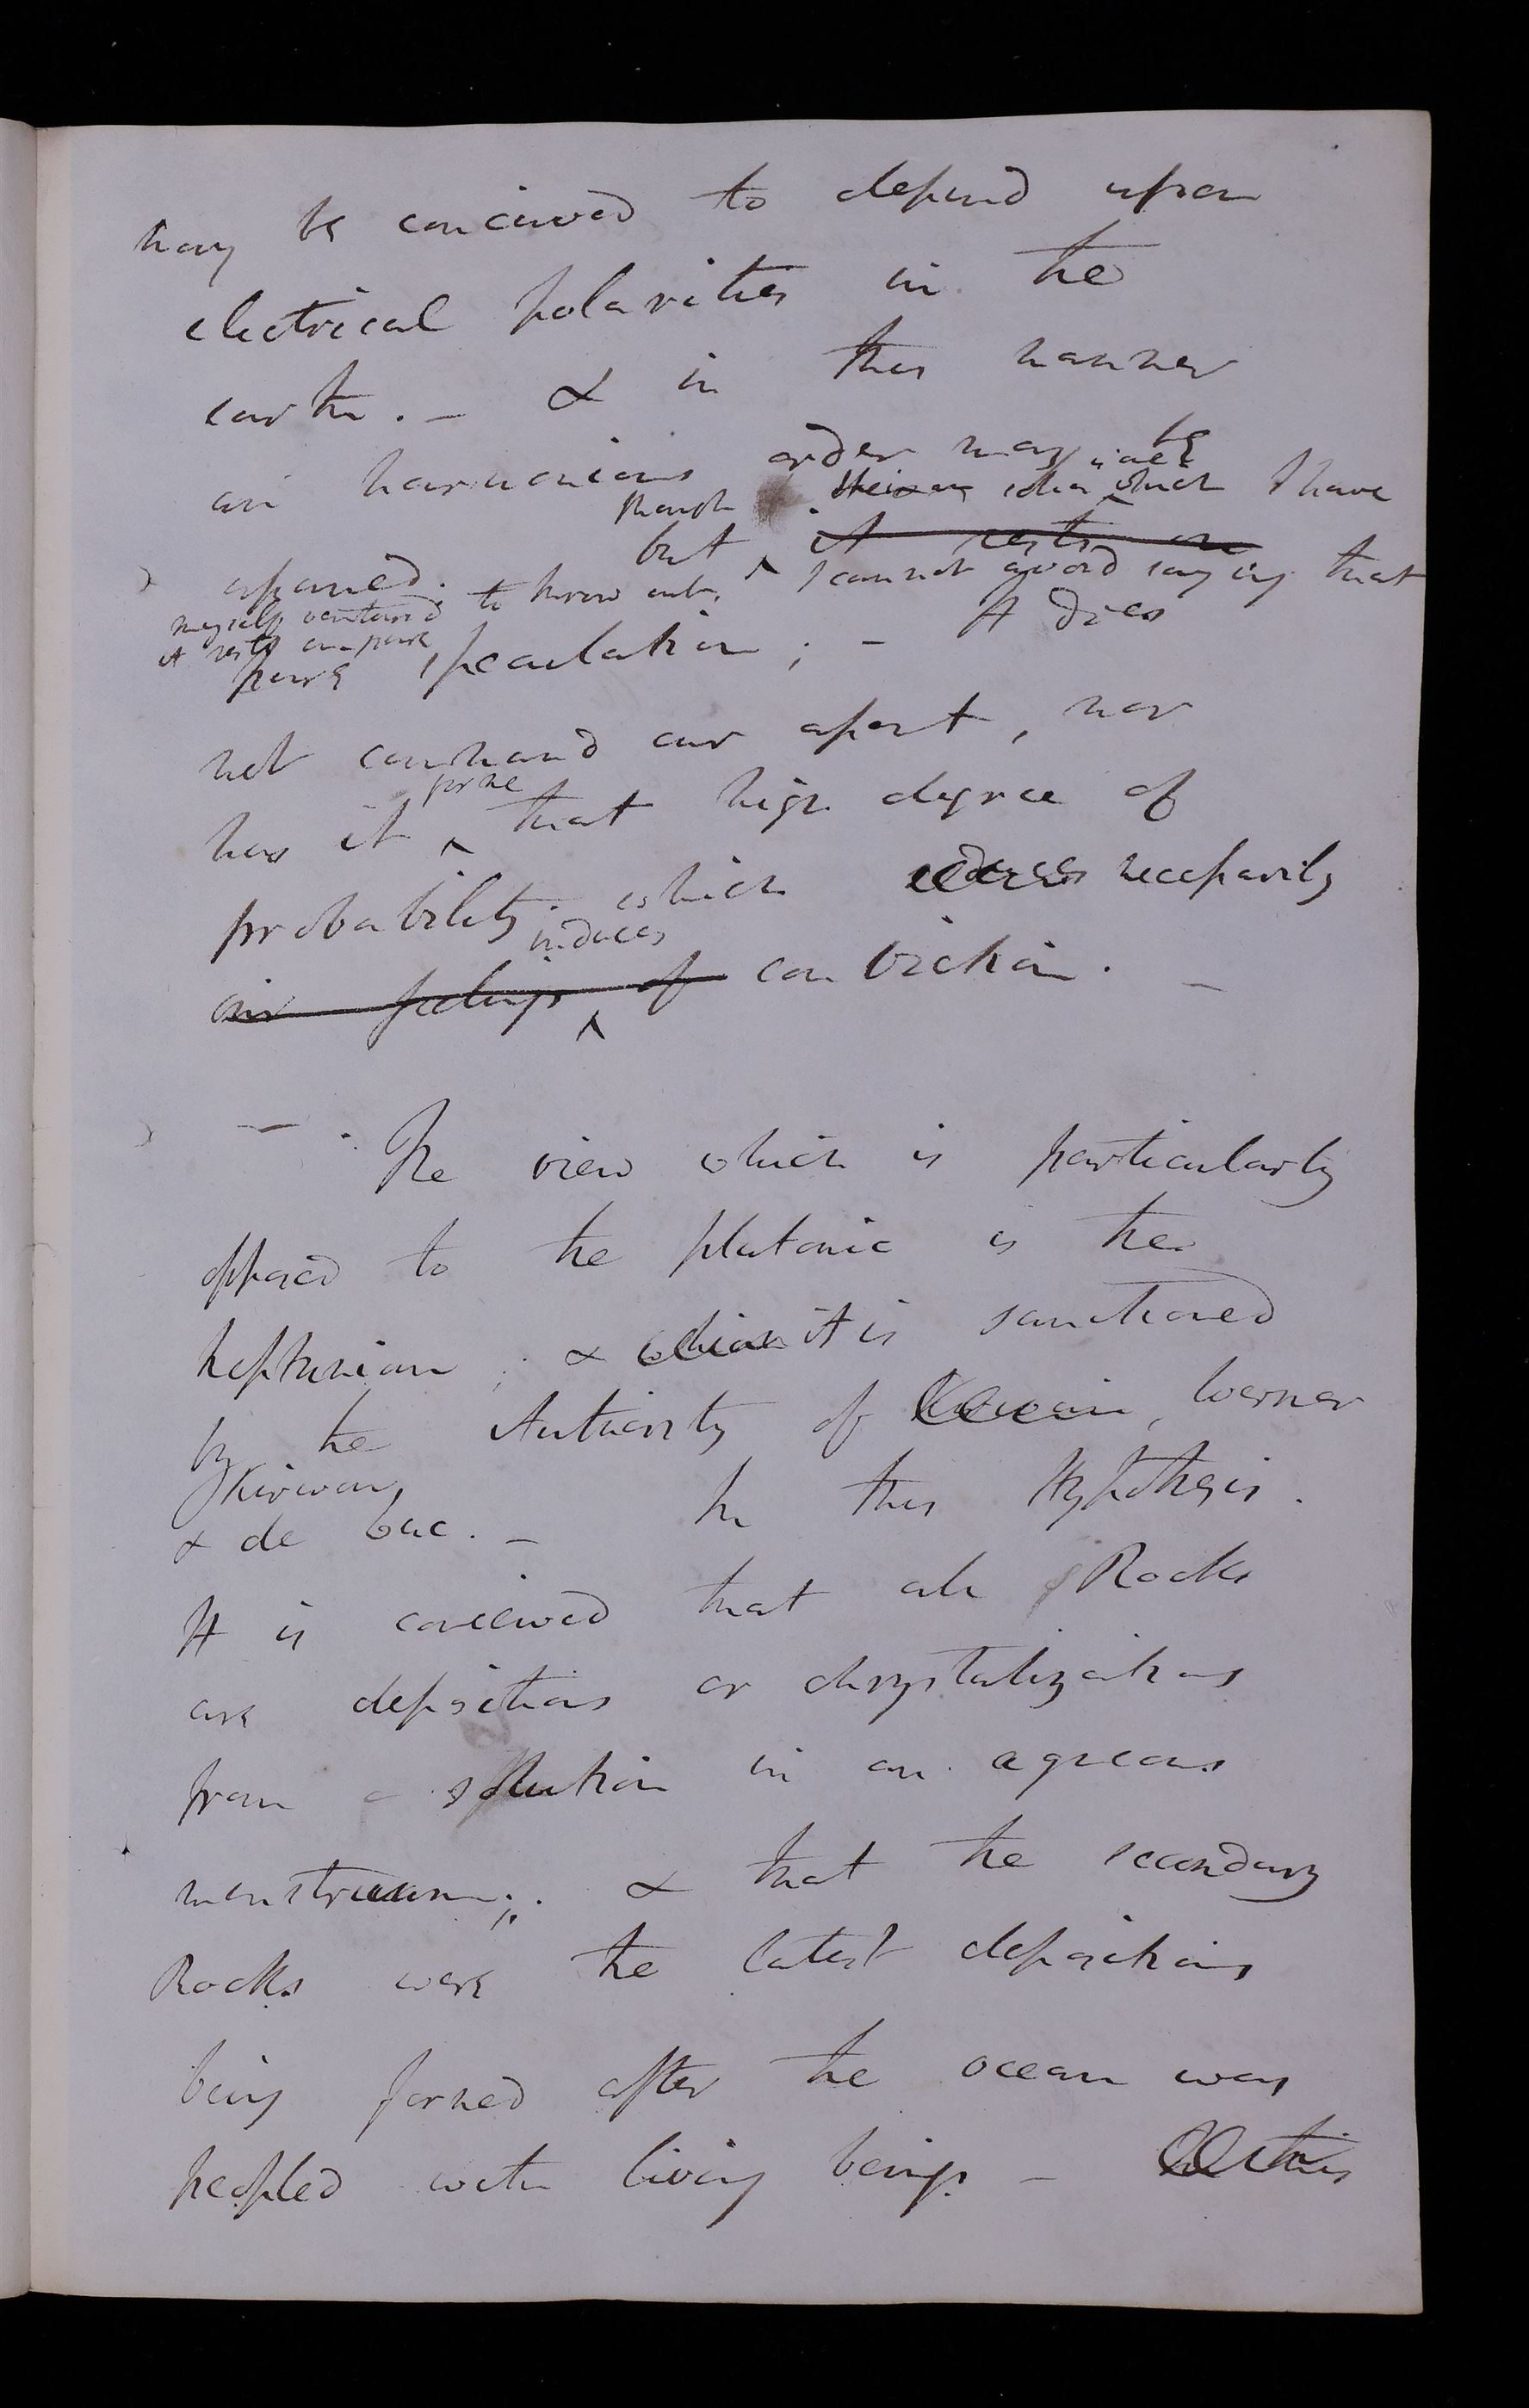 may be conceived to depend upon
electrical polarities in the
earth. – & in this manner
an harmonious order may be
though this is an idea which I have
assumed. but it rests on
myself ventured to throw out, I cannot avoid saying that
it rests on pure
pure speculation; – It does
not command our assent, nor
has it for me that high degree of
probability which induces necessarily
our feelings of conviction. –
induces
– The view which is particularly
opposed to the plutonic is the
neptunian; & it is sanctioned
by the Authority of Kirwan, Werner
Kirwan,
& de Luc. – In this Hypothesis.
It is conceived that all Rocks
are depositions or chrystalizations
from a solution in an aqueous
menstruum; & that the secondary
Rocks were the latest depositions
being formed after the ocean was
peopled with living beings –